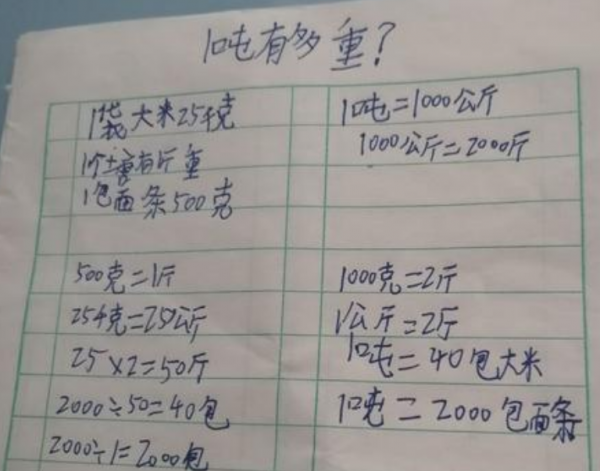 1吨有多重?
1袋大米25千克
1吨=1000公斤
1000公斤=2000斤
1包面条500克
500克=1斤
1000克=2斤
25千克=25公斤
1公斤=2斤
25×2=50斤
1吨=40包大米
2000÷50=40包
1吨=2000包面条
2000÷1=2000包